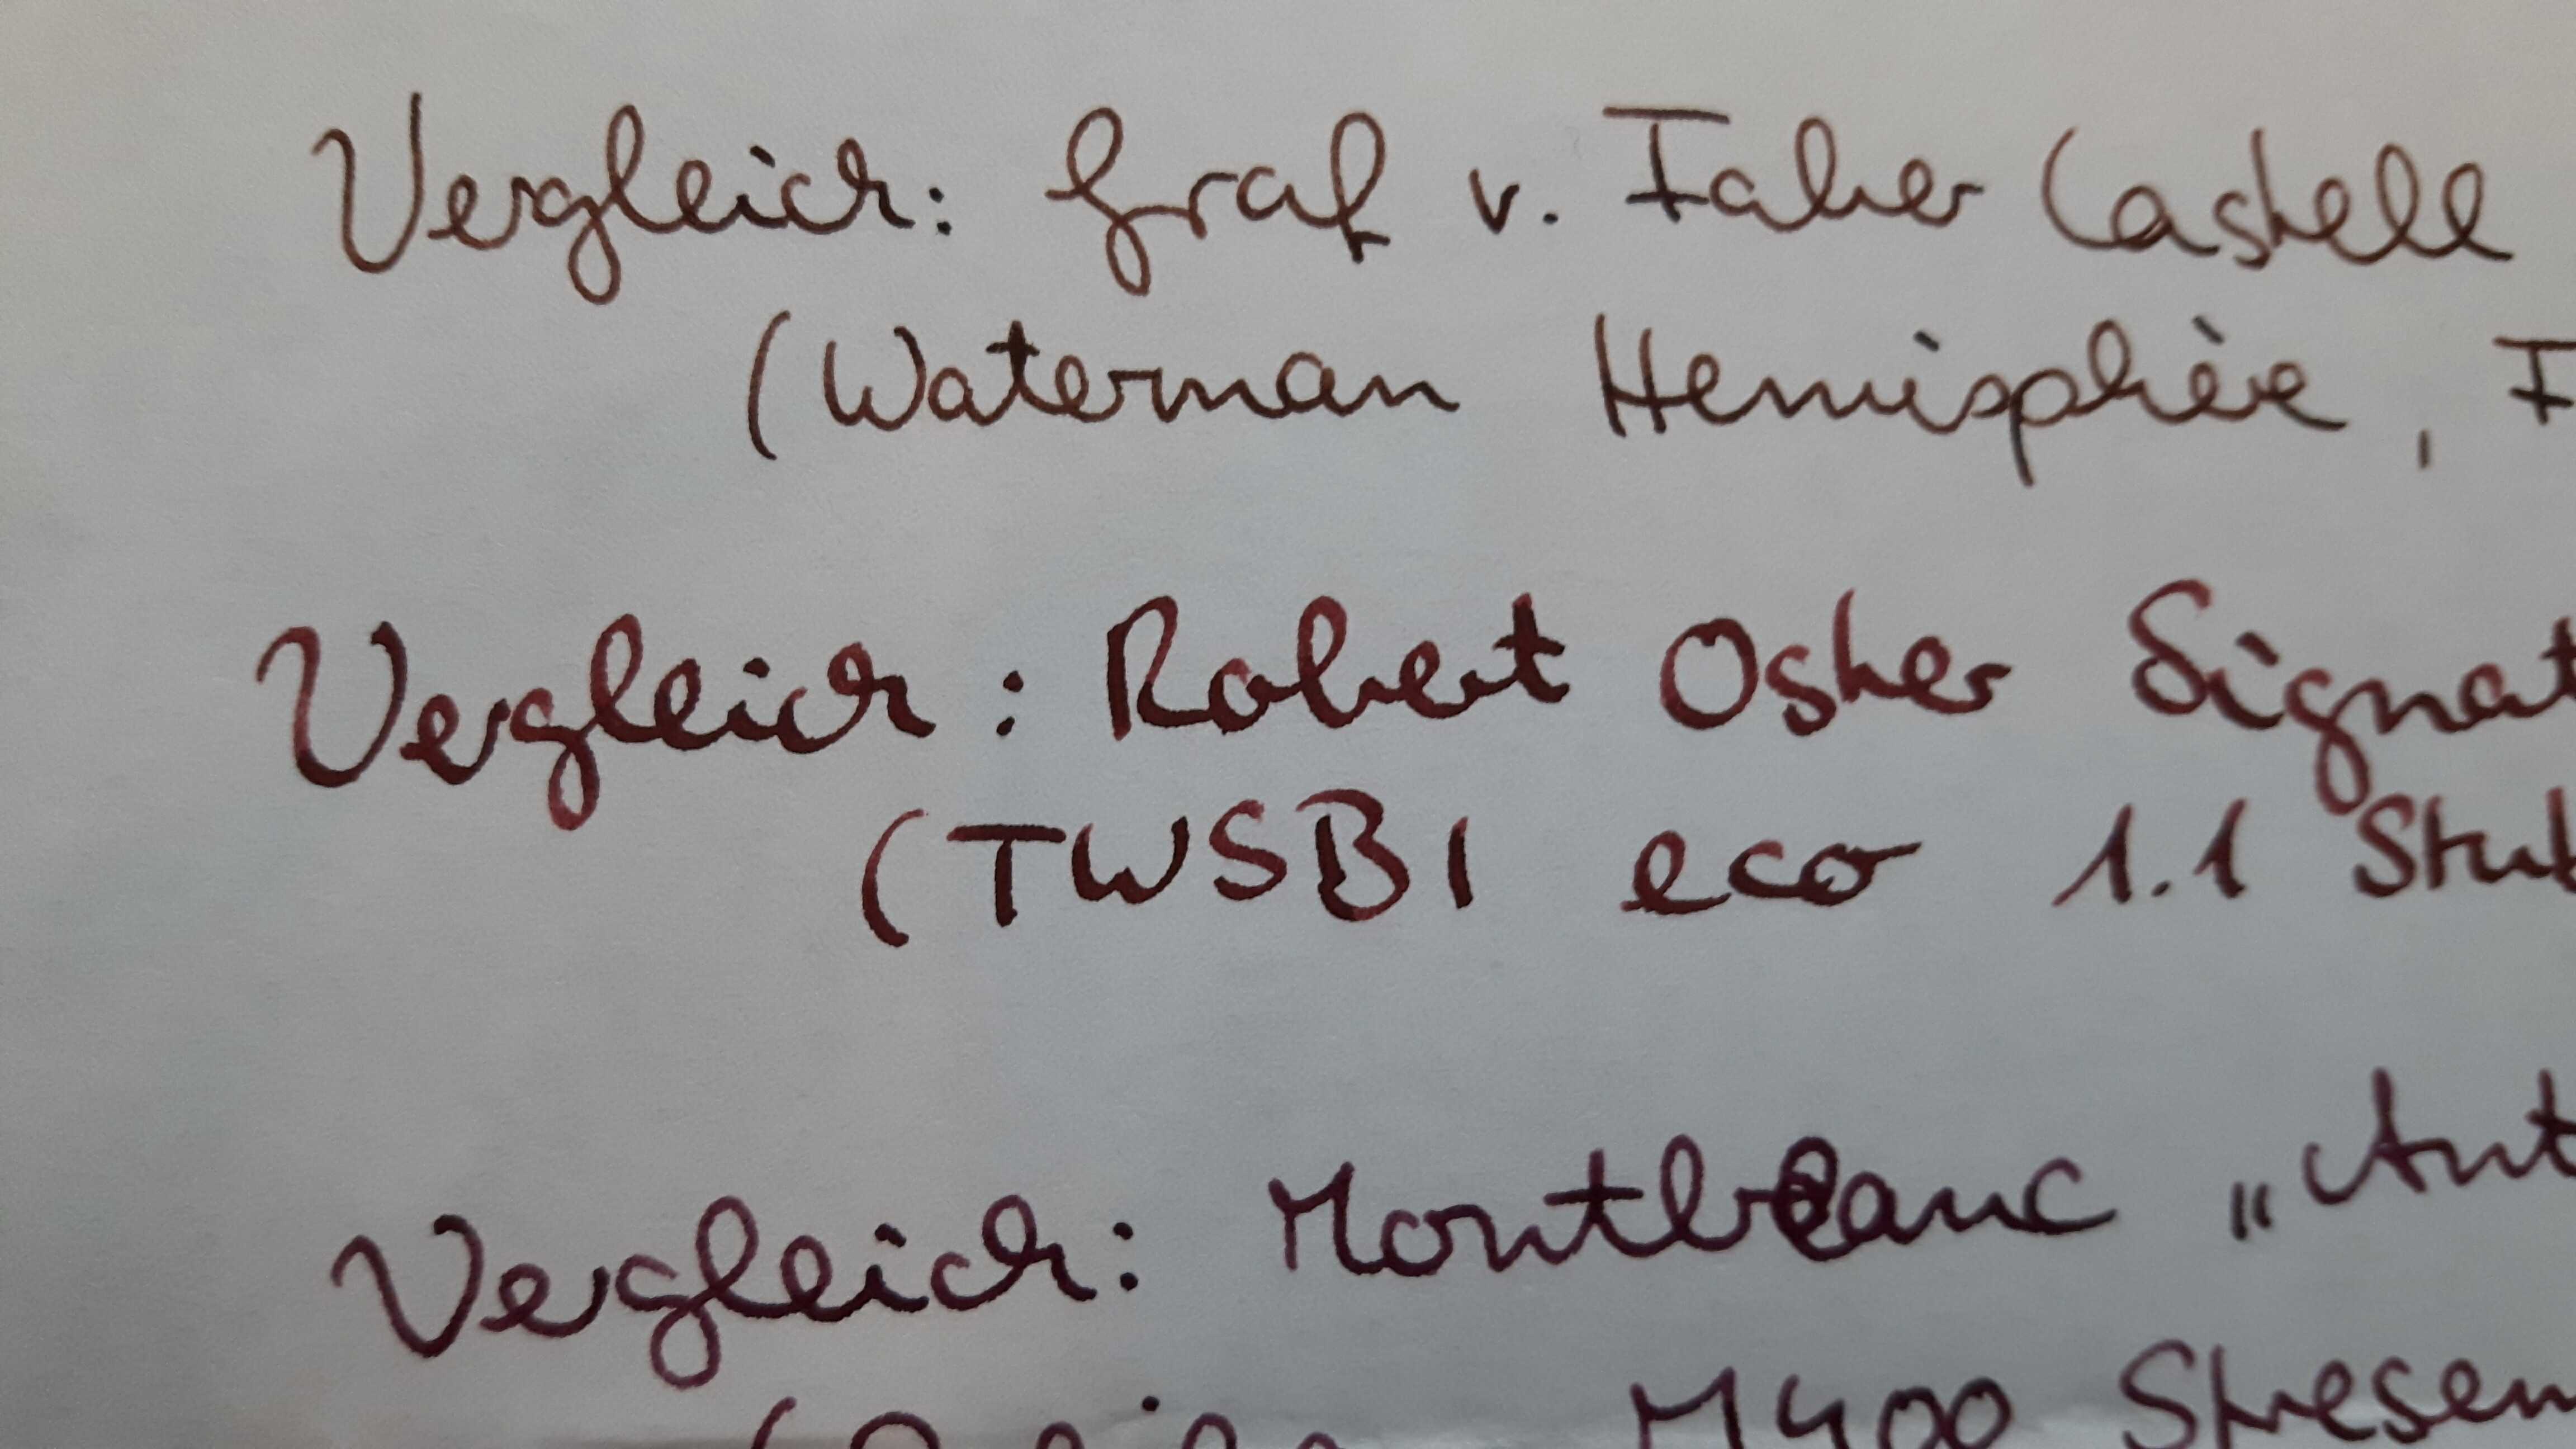 Vergleich: Graf v. Faber Castell
(Waterman Hemisphère, F
Vergleich: Robert Oster Signat
(TWSBI eco 1.1 Stub
Vergleich: Montblanc „Ant
M400 Stresem